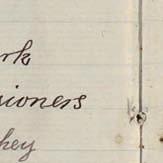 ork
sioners
hey